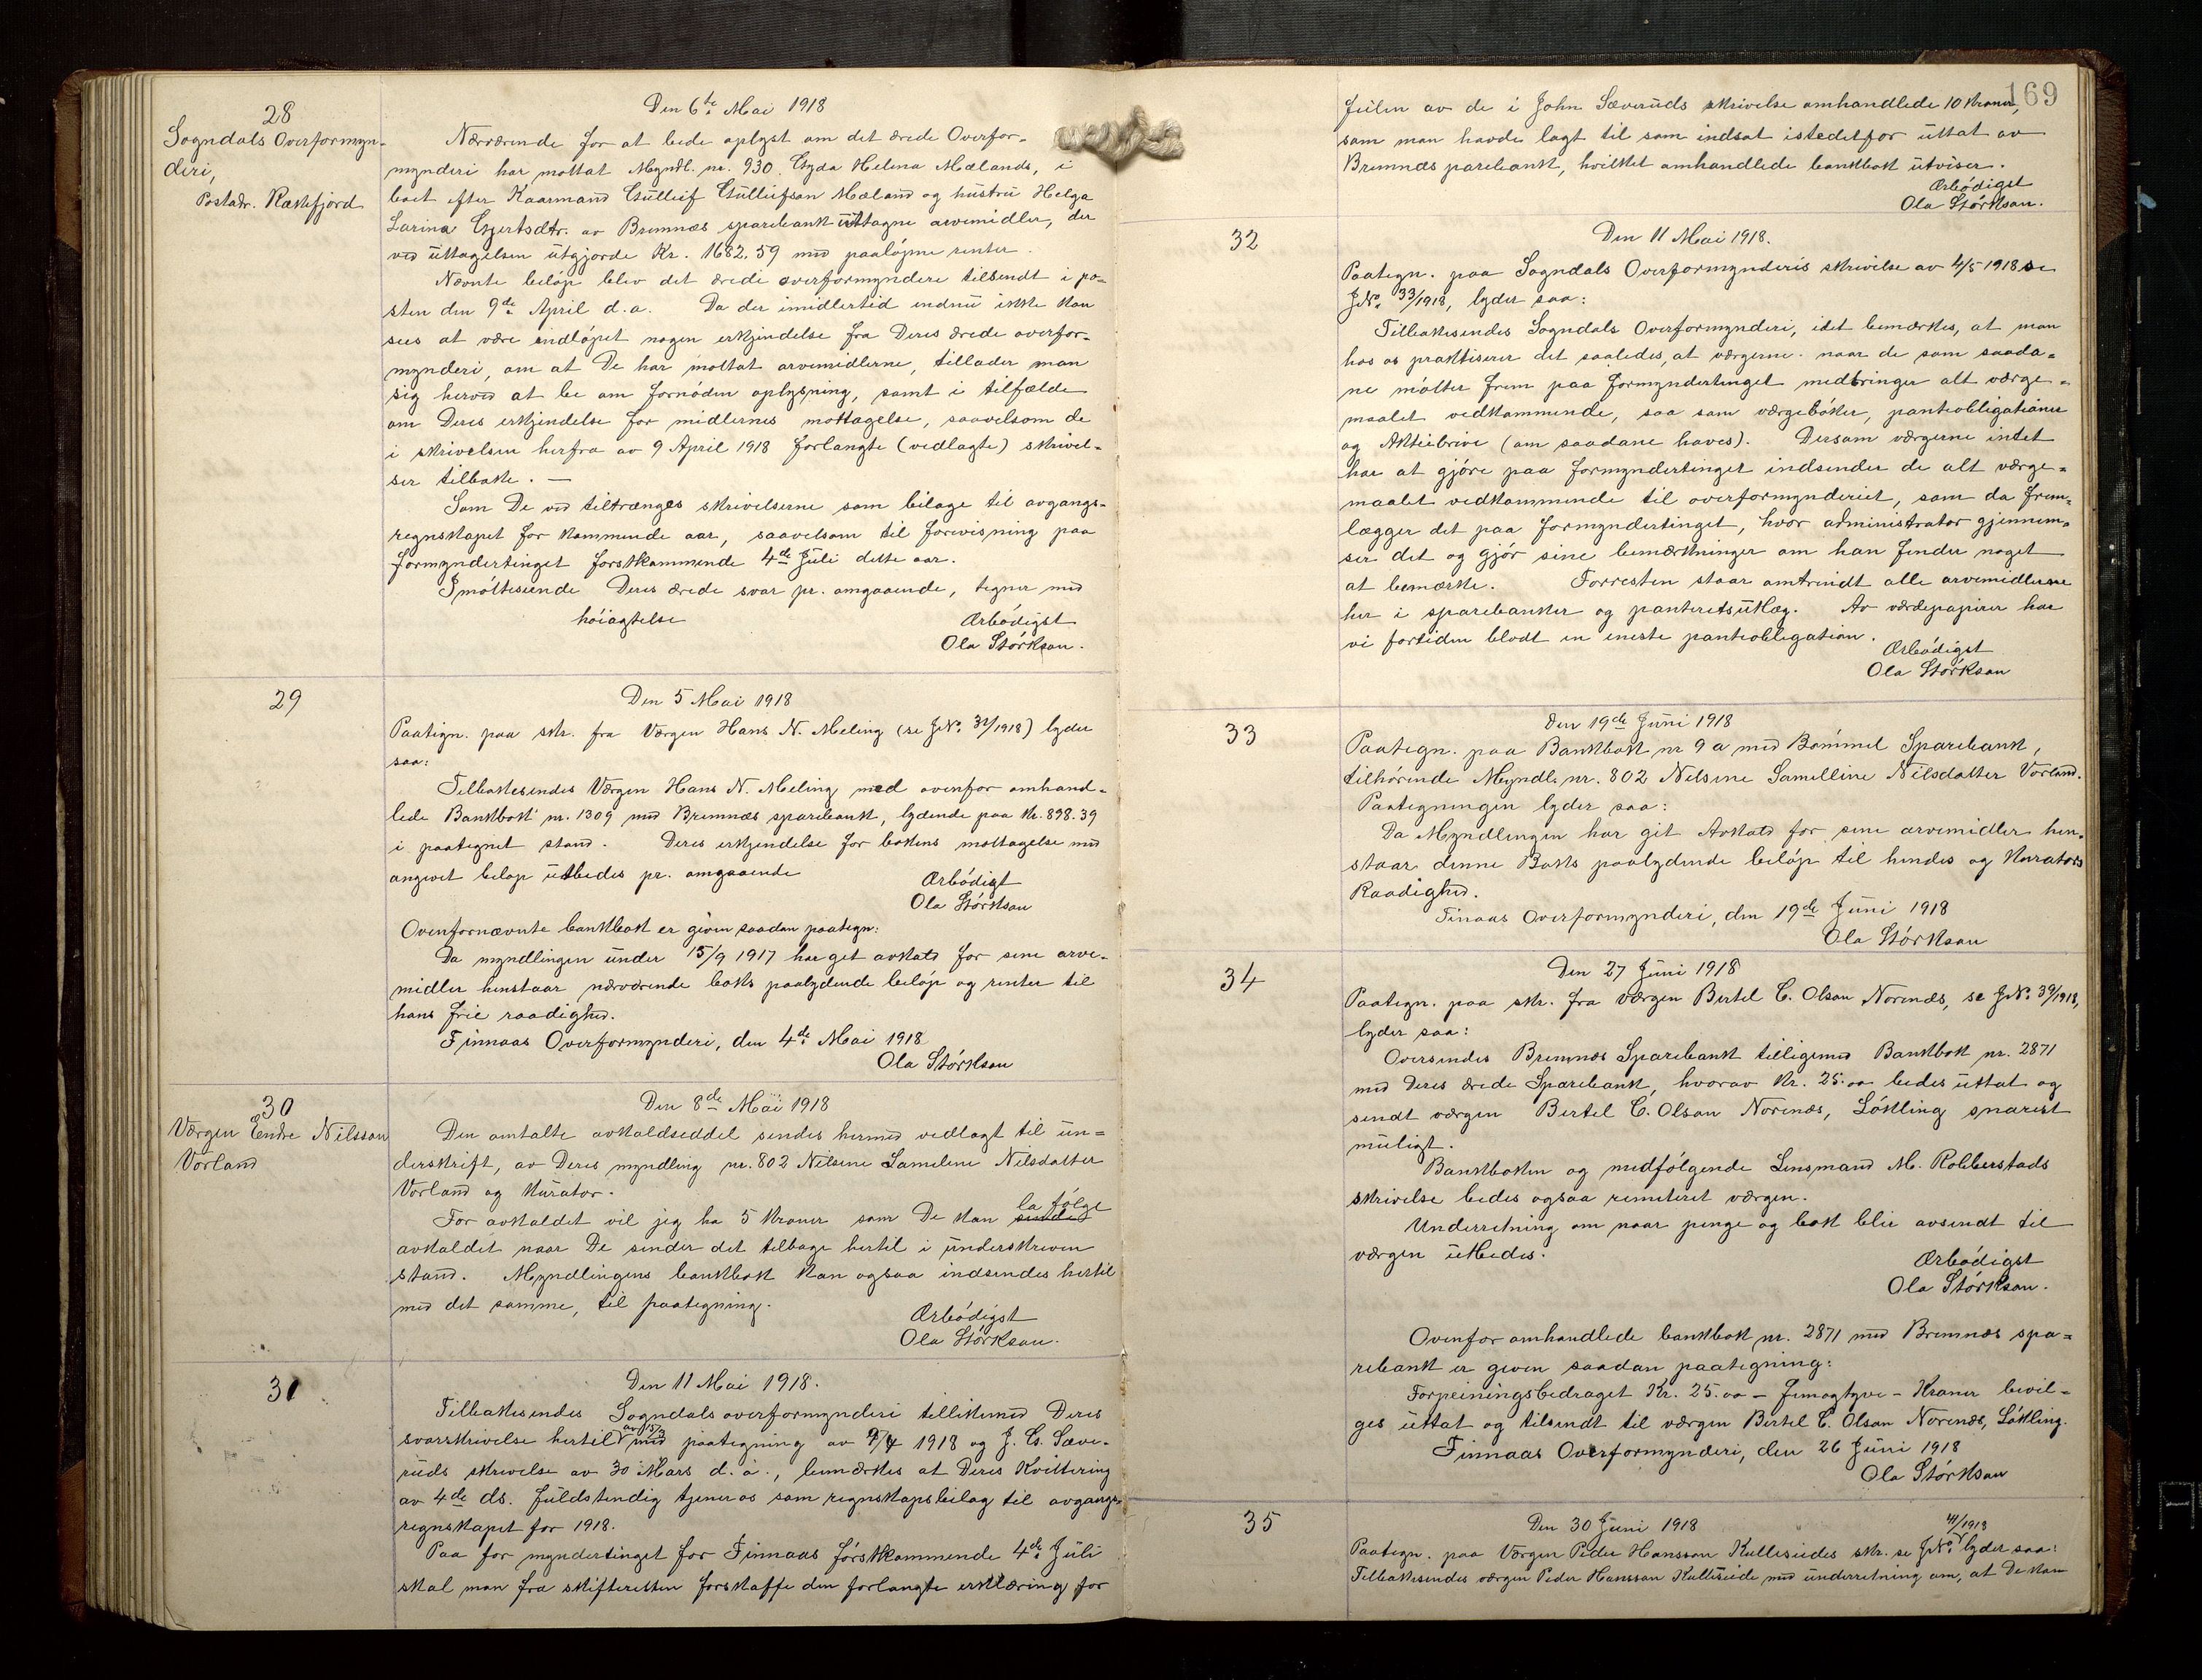 28
Sogndals Overformyn-
deri,
Postadr. Rækefjord
Den 6te Mai 1918
Nærværende for at bede oplyst om det ærede Overfor-
mynderi har mottat Myndl. nr. 930 Gyda Helena Mælands, i
boet efter Kaarmand Gulleif Gulleifsen Mæland og hustru Helga
Larina Gjertsdtr. av Bremnæs sparebank uttagne arvemidler, der
ved uttagelsen utgjorde Kr. 1682.59 med paaløpne renter.
Nævnte beløp blev det ærede overformyndere tilsendt i po-
sten den 9de April d.a. Da der imidlertid endnu ikke kan
sees at være indløpet nogen erkjendelse fra Deres ærede overfor-
mynderi, om at De har mottat arvemidlerne, tillader man
sig herved at be om fornøden oplysning, samt i tilfælde
om Deres erkjendelse for midlernes mottagelse, saavelsom de
i skrivelsen herfra av 9 April 1918 forlangte (vedlagte) skrivel-
ser tilbake. —
Som De ved tiltrænges skrivelserne som bilage til avgangs-
regnskapet for kommende aar, saavelsom til forevisning paa
formyndertinget førstkommende 4de Juli dette aar.
Imøteseende Deres ærede svar pr. omgaaende, tegner med
høiagtelse Ærbødigst
Ola Størkson.
29
Den 5 Mai 1918
Paategn. paa skr. fra Værgen Hans N. Meling (se JNo. 32/1918) lyder
saa:
Tilbakesendes Værgen Hans N. Meling med ovenfor omhand-
lede Bankbok nr. 1309 med Bremnæs sparebank, lydende paa Kr. 898.39
i paategnet stand. Deres erkjendelse for bokens mottagelse med
angivet beløp utbedes pr. omgaaende
Ærbødigt
Ola Størkson
Ovenfornævnte bankbok er given saadan paategn:
Da myndlingen under 15/9 1917 har get avkald for sine arve-
midler henstaar nærværende boks paalydende beløp og renter til
hans frie raadighed.
Finnaas Overformynderi, den 4de Mai 1918
Ola Størkson
30
Værgen Endre Nilsson
Vorland
Den 8de Mai 1918
Den omtalte avkaldseddel sendes hermed vedlagt til un-
derskrift, av Deres myndling nr. 802 Nilsine Sameline Nilsdatter
Vorland og Kurator.
For avkaldet vil jeg ha 5 Kroner som De kan sende la følge
avkaldet naar De sender det tilbage hertil i underskreven
stand. Myndlingens bankbok kan ogsaa indsendes hertil
med det samme, til paategning.
Ærbødigst
Ola Størkson.
31
Den 11 Mai 1918.
Tilbakesendes Sogndals overformynderi tillikemed Deres
svarskrivelse hertil med paategning av 9/4 1918 og J. G. Sæve-
ruds skrivelse av 30 Mars d.a., bemærkes at Deres Kvittering
av 4de ds. fuldstendig tjener os som regnskapsbilag til avgangs-
regnskapet for 1918.
Paa for myndertinget for Finnaas førstkommende 4de Juli
skal man fra skifteretten forskaffe den forlangte erklæring for
169
feilen av de i John Sæveruds skrivelse omhandlede 10 Kroner,
som man havde lagt til som indsat istedetfor uttat av
Bremnæs parebank, hvilket omhandlede bankbok utviser.
Ærbødigst
Ola Størkson.
32
Den 11 Mai 1918.
Paategn. paa Sogndals Overformynderis skrivelse av 4/5 1918 se
JNo. 33/1918, lyder saa:
Tilbakesendes Sogndals Overformynderi, idet bemærkes, at man
hos os praktiserer det saaledes, at værgerne naar de som saada-
ne møtter frem paa formyndertinget medbringer alt værge-
maalet vedkommende, saa som værgebøker, panteobligationer
og Aktiebrive (om saadane haves). Dersom værgerne intet
har at gjøre paa formyndertinget indsender de alt værge-
maalet vedkommende til overformynderiet, som da frem-
lægger det paa formyndertinget, hvor administrator gjennem-
ser det og gjør sine bemærkninger om han finder noget
at bemærke. Forresten staar omtrindt alle arvemidlerne
her i sparebanker og panteretsutlæg. Av værdepapirer har
vi fortiden blodt en eneste panteobligation.
Ærbødigst
Ola Størkson
33
Den 19de Juni 1918
Paategn. paa Bankbok nr 9 a med Bømmel Sparebank,
tilhørende Myndl. nr. 802 Nilsine Samelline Nilsdatter Vorland.
Paategningen lyder saa:
Da Myndlingen har git Avkald for sine arvemidler hen-
staar denne Boks paalydende beløp til hendes og Kurators
Raadighed.
Finaas Overformynderi, den 19de Juni 1918
Ola Størkson
34
Den 27 Juni 1918
Paategn. paa skr. fra værgen Bertel C. Olson Norenæs, se JNo. 39/1918,
lyder saa:
Oversendes Bremnæs Sparebank tilligemed Bankbok nr. 2871
med Deres ærede Sparebank, hvorav Kr. 25.oo bedes uttat og
sendt værgen Bertel C. Olson Norenæs, Løkling snarest
muligt.
Bankboken og medfølgende Lensmand M. Robberstads
skrivelse bedes ogsaa remiteret værgen.
Underretning om naar penge og bok blir avsendt til
værgen utbedes.
Ærbødigst
Ola Størkson.
Ovenfor omhandlede bankbok nr. 2871 med Bremnæs spa-
rebank er given saadan paategning:
Forpeiningsbedraget Kr. 25.oo — femogtyve — Kroner bevil-
ges uttat og tilsendt til værgen Bertel C. Olson Norenæs, Løkling.
Finnaas Overformynderi, den 26 Juni 1918
Ola Størkson
35
Den 30 Juni 1918
Paategn. paa Værgen Peder Hansson Kulleseides skr. se JNo. 41/1918 lyder saa:
Tilbakesendes værgen Peder Hansson Kulleseide med underretning om, at De kan